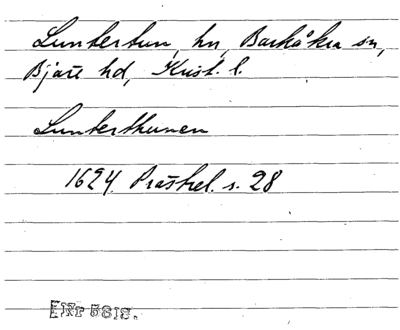 Luntertun, hn, Barkåkra sn,
Bjäre hd, Krist. l.
Lunterthunen
1624. Prästrel. s. 28
ENr 5818.